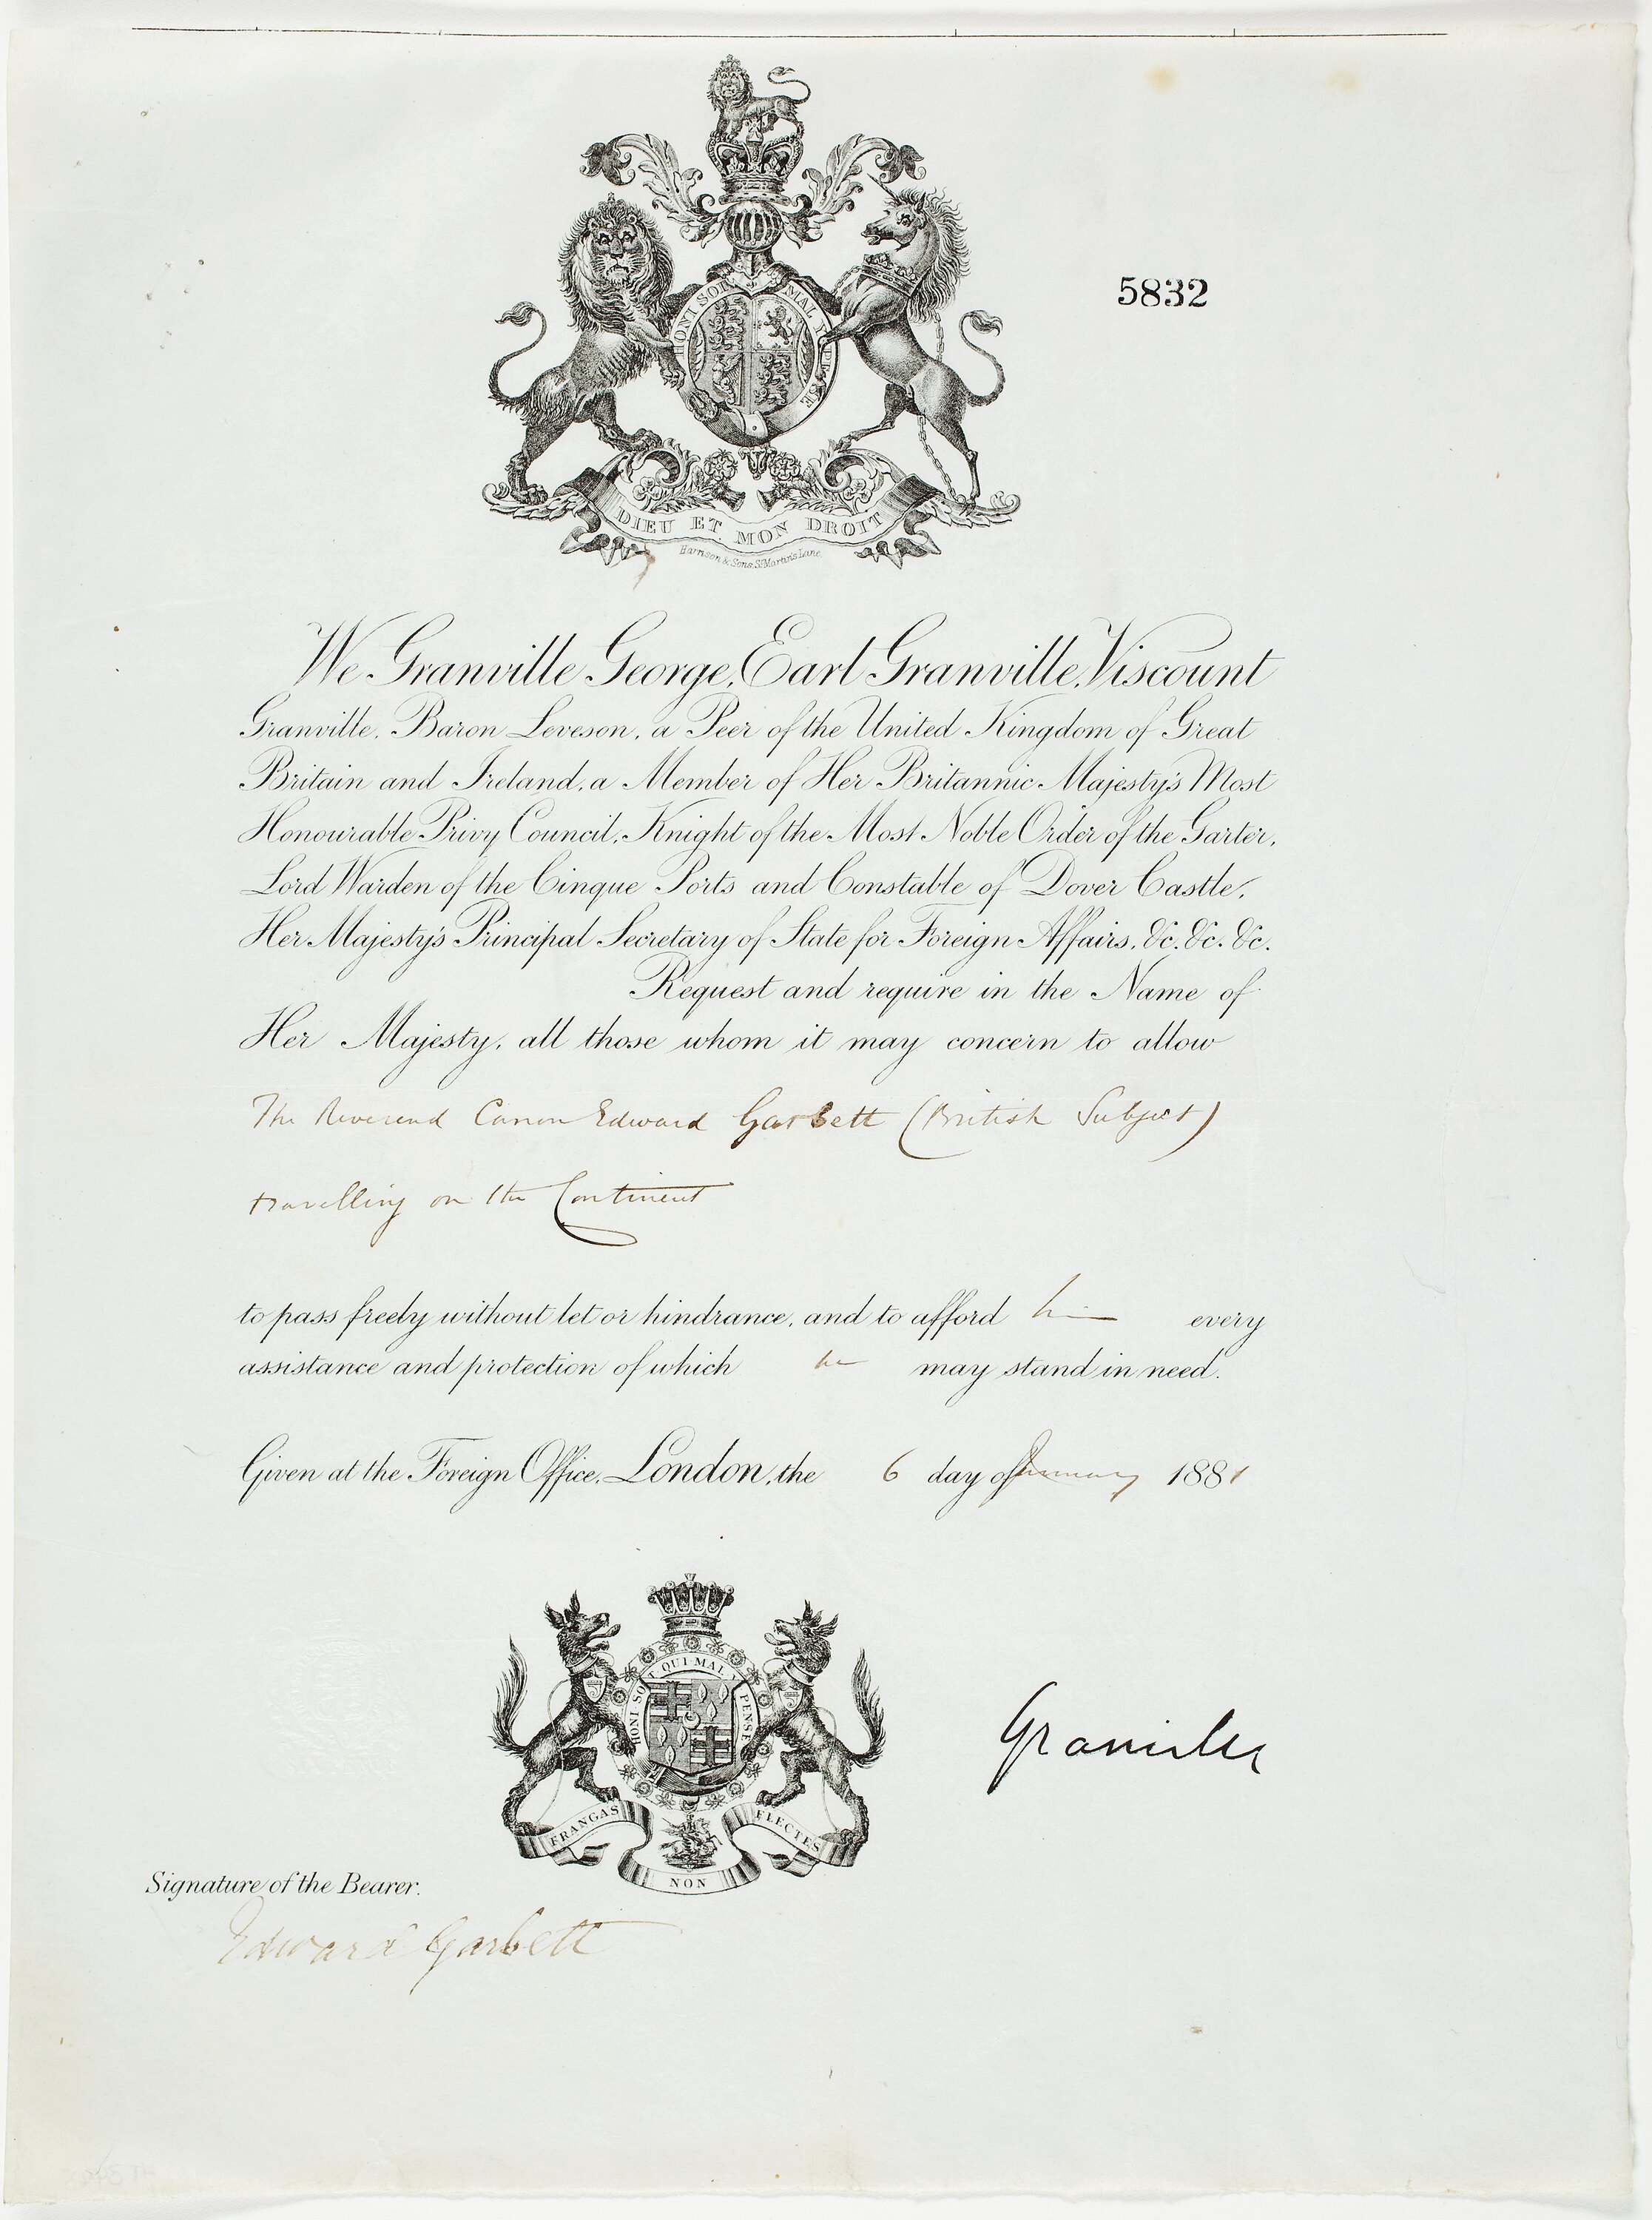 HONI SOI MAL Y PENSE
5832
DIEU ET MON DROIT
Harrison & Sons, St Martin's Lane
We Granville George, Earl Granville, Viscount
Granville, Baron Leveson, a Peer of the United Kingdom of Great
Britain and Ireland, a Member of Her Britannic Majesty's Most
Honourable Privy Council, Knight of the Most Noble Order of the Garter,
Lord Warden of the Cinque Ports and Constable of Dover Castle,
Her Majesty's Principal Secretary of State for Foreign Affairs, &c. &c. &c.
Request and require in the Name of
Her Majesty, all those whom it may concern to allow
The Reverend Canon Edward Garbett (British Subject)
travelling on the Continent
to pass freely without let or hindrance, and to afford him every
assistance and protection of which he may stand in need.
Given at the Foreign Office, London, the 6 day of January 1881
HONI SOIT QUI MAL Y PENSE
Granville
FRANGAS NON FLECTES
Signature of the Bearer.
Edward Garbett